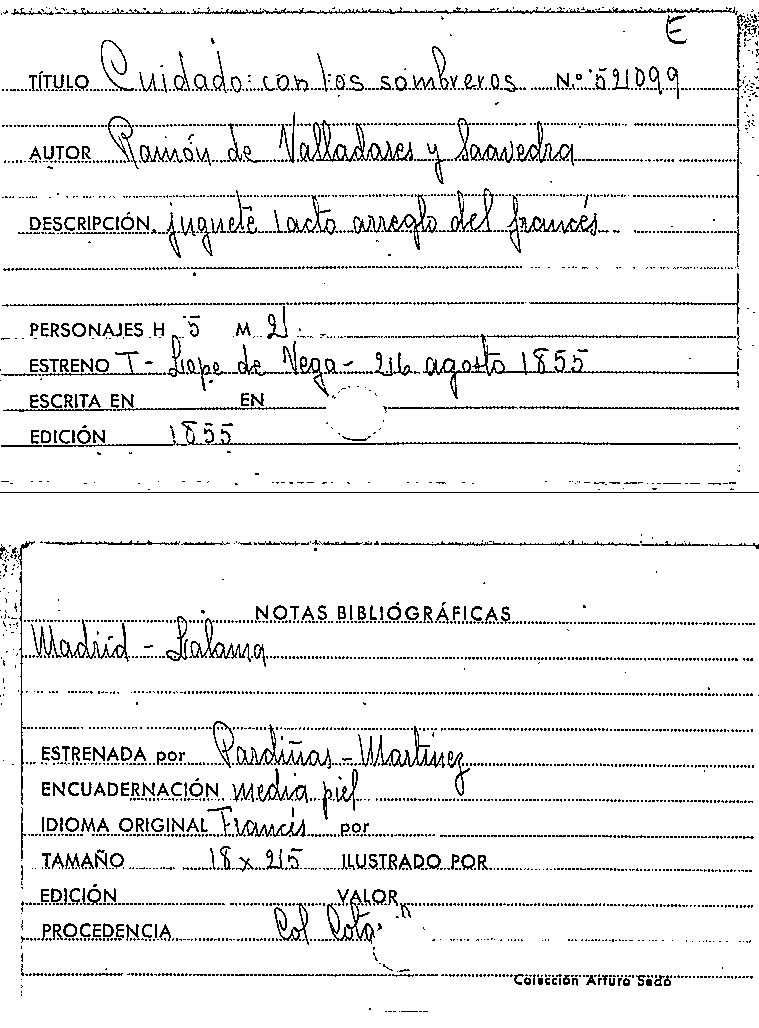 E
TÍTULO Cuidado con los sombreros N.º 52099
AUTOR Ramón de Valladares y Saavedra
DESCRIPCIÓN juguete 1 acto arreglo del francés
PERSONAJES H 5 M 2
ESTRENO T- Lope de Vega - 26 agosto 1855
ESCRITA EN EN
EDICIÓN 1855
NOTAS BIBLIOGRÁFICAS
Madrid - Lalama
ESTRENADA por Pardiñas - Martínez
ENCUADERNACIÓN media piel
IDIOMA ORIGINAL Francés por
TAMAÑO 18 x 25 ILUSTRADO POR
EDICIÓN VALOR
PROCEDENCIA Col
Colección Arturo Sedó